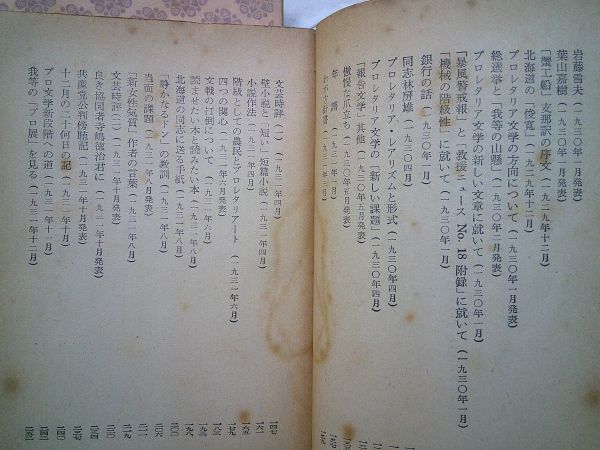 岩藤雪夫（一九三〇年一月発表）
葉山嘉樹（一九三〇年一月発表）
「蟹工船」支那訳の序文（一九二九年十二月）
北海道の「俊寛」（一九二九年十二月）
プロレタリア文学の方向について（一九三〇年一月発表）
総選挙と「我等の山懸」（一九三〇年二月発表）
プロレタリア文学の新しい文章に就いて（一九三〇年一月）
「暴風警戒報」と「救援ニュース No. 18 附録」に就いて（一九三〇年一月）
「機械の階級性」に就いて（一九三〇年一月）
銀行の話（一九三〇年一月）
同志林房雄（一九三〇年四月発表）
プロレタリア・レアリズムと形式（一九三〇年四月）
プロレタリア文学の「新しい課題」（一九三〇年四月）
「報告文学」其他（一九三〇年五月発表）
傲慢な爪立ち（一九三〇年六月発表）
文芸時評（一）（一九三一年四月）
壁小説と「短い」短篇小説（一九三一年四月）
小説作法（一九三一年四月）
階級としての農民とプロレタリアート（一九三一年六月）
四つの関心（一九三一年六月発表）
文戦の打倒について（一九三一年六月）
読ませたい本と読みたい本（一九三一年八月）
北海道の同志に送る手紙（一九三一年八月）
「静かなるドン」の教訓（一九三一年八月）
当面の課題（一九三一年八月発表）
「新女性気質」作者の言葉（一九三一年八月）
文芸時評（二）（一九三一年十月発表）
良き協同者寺嶋徳治君に（一九三一年十月発表）
共産党公判傍聴記（一九三一年十月発表）
十二月の二十何日の記（一九三一年十月発表）
プロ文学新段階への道（一九三一年十一月）
我等の「プロ展」を見る（一九三一年十二月）